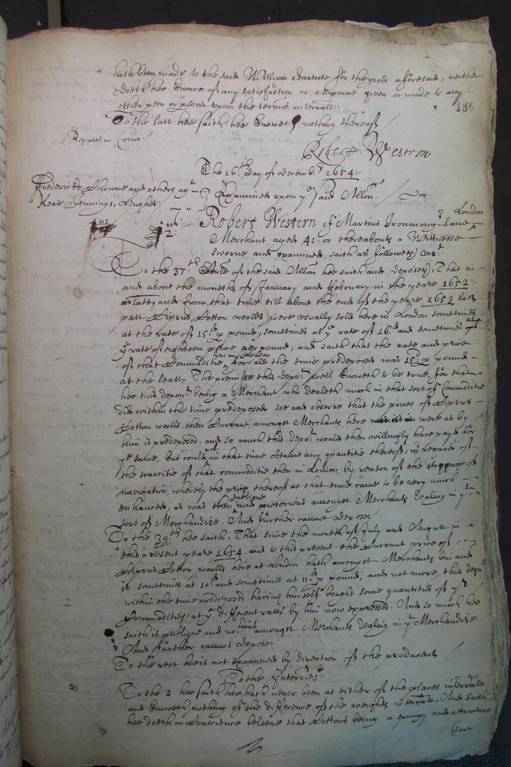 hath been made to the said William for the goods aforesaid, neither
doth hee knowe of any satisfaction or given or made to any
other pson or psons upon the terrate:
186
To the last hee saith hee knoweth nothing thereof
Repeated in Court
Robert Western
The 16th day of decemb: 1654:
and others agt
Examined upon ye said Allon
Robert Western of Martins Ironmonger Lane London
Merchant aged 41 or thereabouts a Wittnesse
sworne and examined saith as followeth viz:
To the 37th of the said Allon hee saith and deposeth, That in
and about the moneths of January and February in the yeare 1652
and from that time till about the end of the yeare 1653 last
past Ciprus Cotton woolls were usually sold here in London sometimes
at the rate of 15d p pound, sometimes at ye rate of 16d and sometimes at
ye rate of eighteen pence per pound, and saith that the rate and price
of that Commoditie here in London for all the time predeposed was 15d p pound
at the least. The premisses this depot well knoweth to be true, for that
hee this depont being a Merchant who dealeth much in that sort of Commoditie
did within the time predeposed see and observe that the prices of Ciprus
Cotton woolls then Currant amongst Merchants here were as by
him is predeposed. and so much this depot would then willingly have payd for
ye same, but could in that time obtaine any quantitie thereof, in regard of
the scarcitie of that commoditie then in London, by reason of the stoppage of
navigation, whereby the price thereof at that time came to be very much
enhanced, as was then publique and notorious amongst Merchants dealing in yt
sort of Merchandize. And further cannot depose.
To the 39th hee saith. That since the moneths of July and August in
this present yeare 1654 and to this present the Currant price of
Ciprus Cotton wools here at London hath amongst Merchants bin and
is sometimes at 10d and sometimes at 11d p pound, and not more, this depot
within the time predeposed having himself bought some quantities of yt
Commoditie at ye different rates by him now expressed. And so much hee
saith is publique and notorious amongst Merchants dealing in yt Merchandize.
And further cannot depose.
To the rest hee is not examined by direction of the producents
To the Interries:
To the 2 hee saith hee hath never been at either of the places interrate
and knoweth nothing of the difference of the weights interrate. And saith
hee doth in Conscience beleeve that Cottons being a and